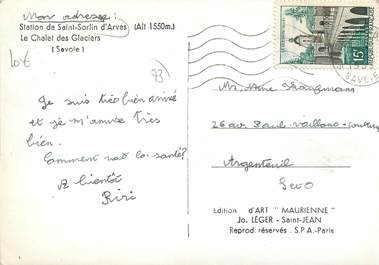 Mon adresse :
Station de Saint-Sorlin d'Arves (Alt 1550m.)
Le Chalet des Glaciers
(Savoie)
73
Je suis très bien arrivé
et je m'amuse très
bien.
Comment va la santé?
A bientôt
Riri
15F
Mr, Mme
26 av. Paul Vaillant-Couturier
Argenteuil
S et O
Edition d'ART " MAURIENNE "
Jo. LÉGER - Saint-JEAN
Reprod. réservés . S.P.A.-Paris